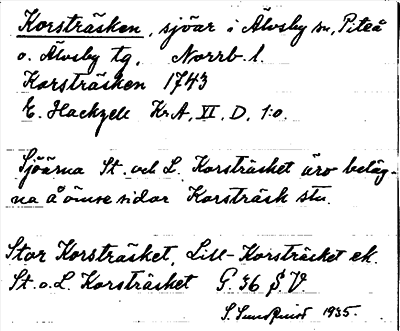 Korsträsken, sjöar i Älvsby sn, Piteå
o. Älvsby tg, Norrb. l.
Korsträsken 1743
E. Hackzell Kr.A, VI, D, 1:o.
Sjöarna St. och L. Korsträsket äro beläg-
na å ömse sidor Korsträsk stn.
Stor Korsträsket, Lill-Korsträsket ek.
St. o. L. Korsträsket G. 36 S.V.
1935.